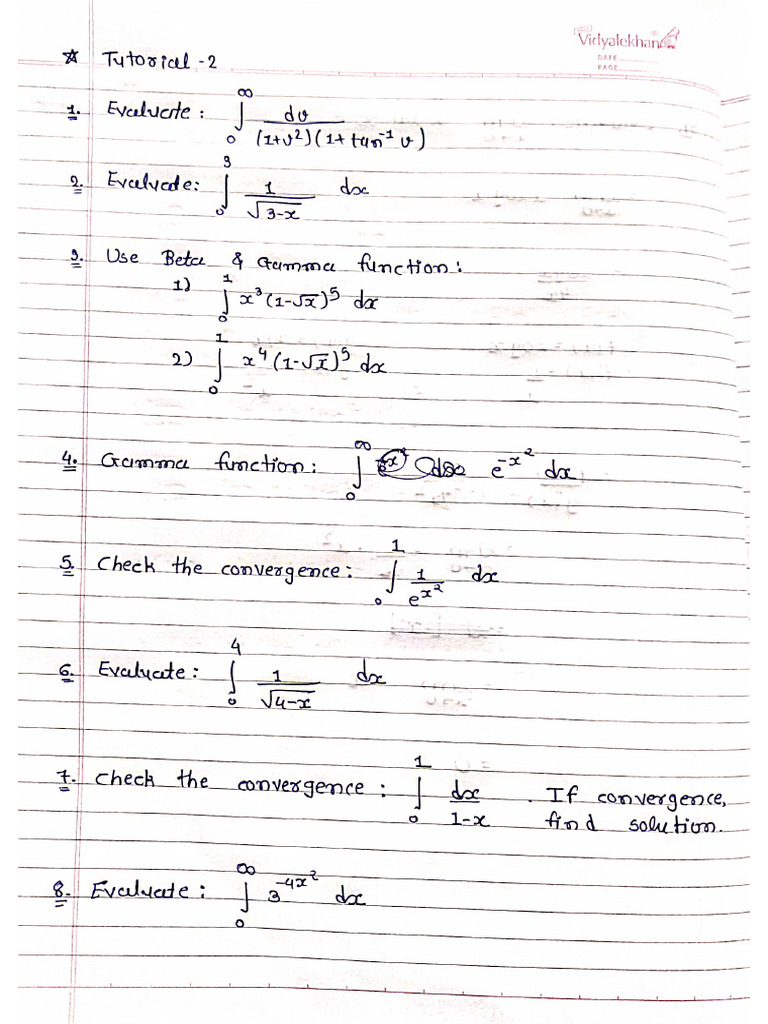 Vidyalekhan
DATE
PAGE
☆ Tutorial - 2
1. Evaluate : ∫₀^∞ dv / (1+v²)(1+tan⁻¹ v)
2. Evaluate: ∫₀³ 1/√(3-x) dx
3. Use Beta & Gamma function :
1) ∫₀¹ x³(1-√x)⁵ dx
2) ∫₀¹ x⁴(1-√x)⁵ dx
4. Gamma function : ∫₀^∞ e^(-x²) dx
5. Check the convergence : ∫₀¹ 1/e^(x²) dx
6. Evaluate : ∫₀⁴ 1/√(4-x) dx
7. Check the convergence : ∫₀¹ dx/(1-x) . If convergence,
find solution.
8. Evaluate : ∫₀^∞ 3^(-4x²) dx